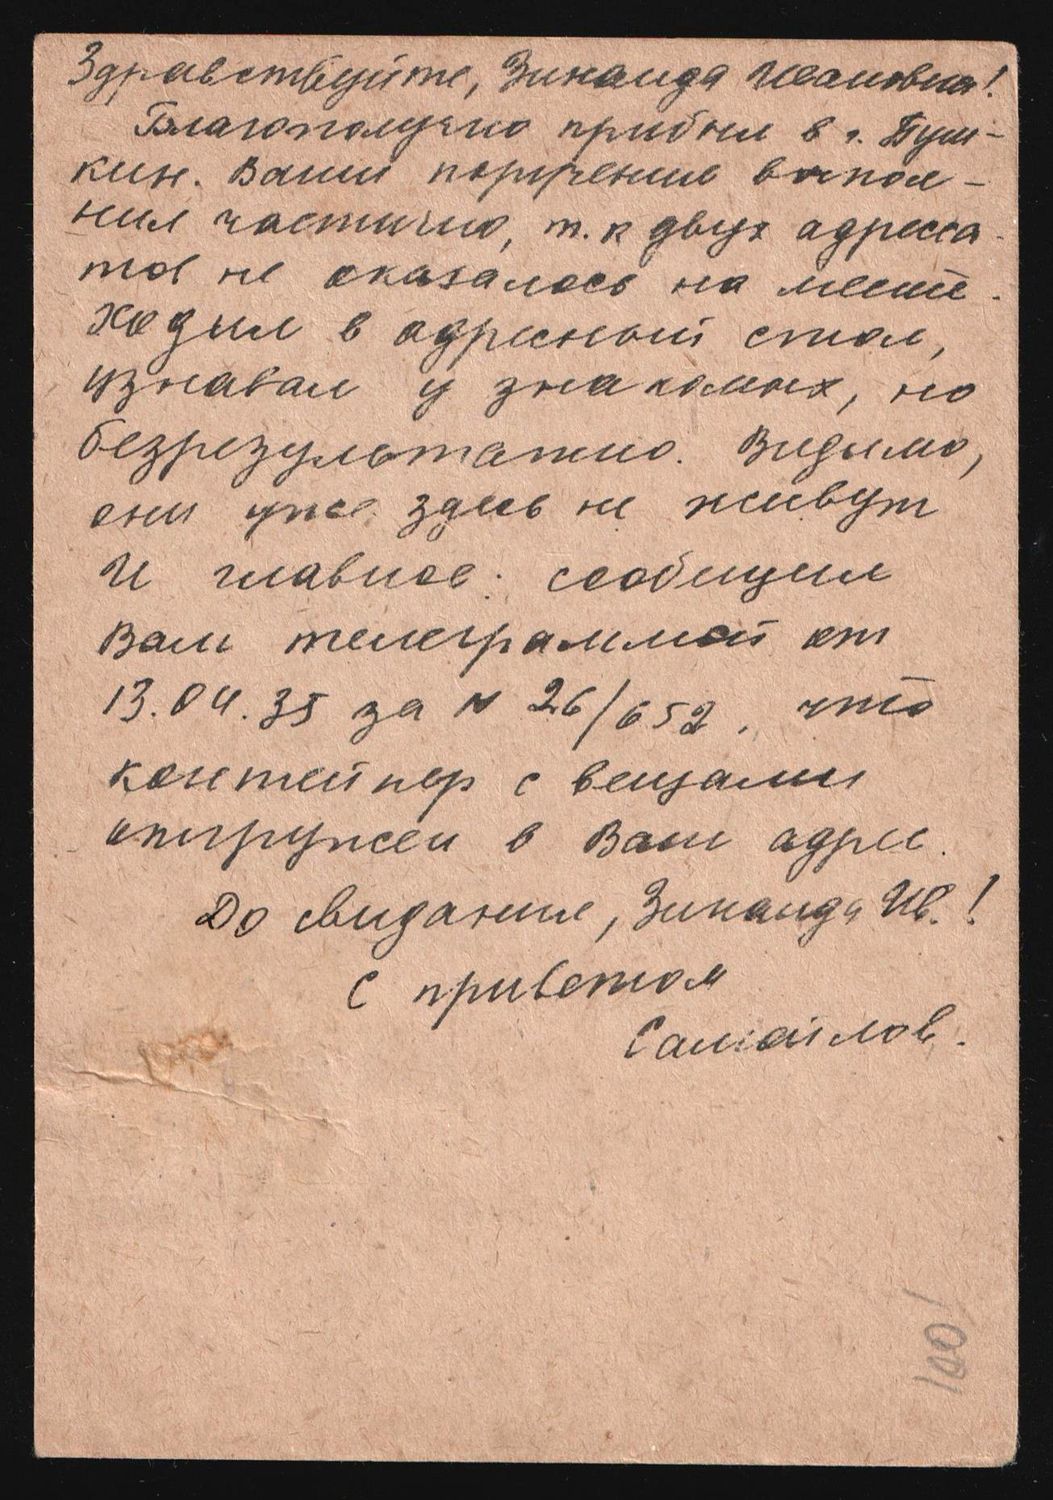 Здравствуйте, Зинаида Ивановна!
Благополучно прибыл в г. Пуш-
кин. Ваши поручения выпол-
нил частично, т.к двух адресса-
тов не оказалось на месте.
Ходил в адресный стол,
узнавал у знакомых, но
безрезультатно. Видимо,
они уже здесь не живут
И главное: сообщил
Вам телеграммой от
13.04.35 за № 26/652, что
контейнер с вещами
отгружен в Ваш адрес.
До свидания, Зинаида Ив.!
С приветом
Самойлов.
100!